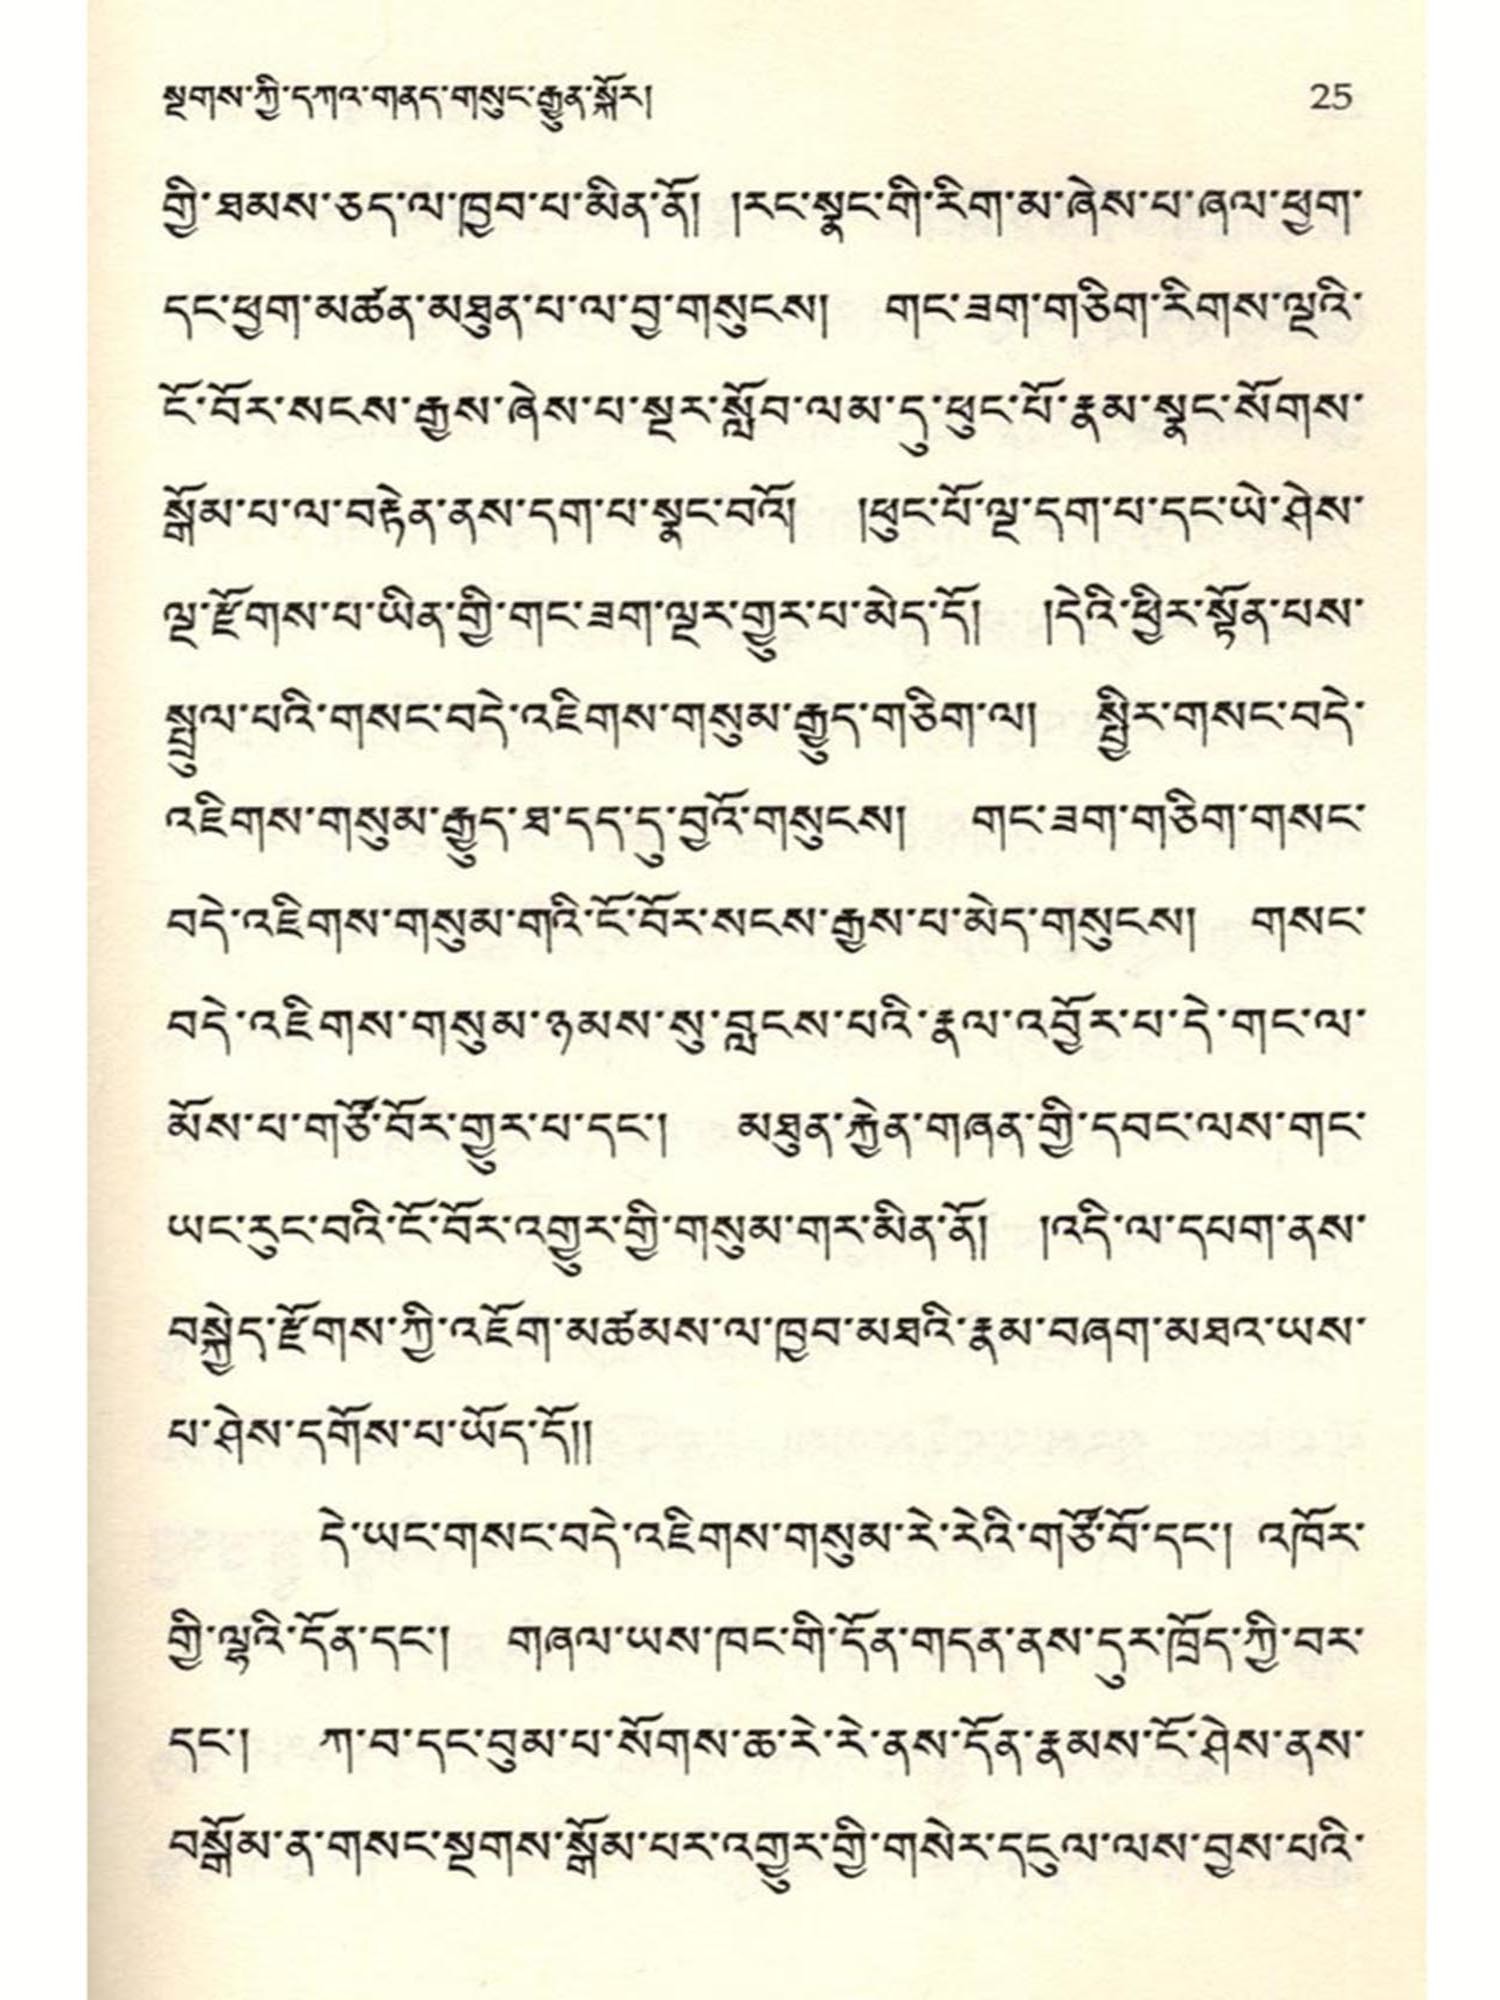 སྔགས་ཀྱི་དཀའ་གནད་གསུང་རྒྱུན་སྐོར། 25
གྱི་ཐམས་ཅད་ལ་ཁྱབ་པ་མིན་ནོ། །རང་སྣང་གི་རིག་མ་ཞེས་པ་ཞལ་ཕྱག་
དང་ཕྱག་མཚན་མཐུན་པ་ལ་བྱ་གསུངས། གང་ཟག་གཅིག་རིགས་ལྔའི་
ངོ་བོར་སངས་རྒྱས་ཞེས་པ་སྔར་སློབ་ལམ་དུ་ཕུང་པོ་རྣམ་སྣང་སོགས་
སྒོམ་པ་ལ་བརྟེན་ནས་དག་པ་སྣང་བའོ། །ཕུང་པོ་ལྔ་དག་པ་དང་ཡེ་ཤེས་
ལྔ་རྫོགས་པ་ཡིན་གྱི་གང་ཟག་ལྔར་གྱུར་པ་མེད་དོ། །དེའི་ཕྱིར་སྟོན་པས་
སྤྲུལ་པའི་གསང་བདེ་འཇིགས་གསུམ་རྒྱུད་གཅིག་ལ། སྤྱིར་གསང་བདེ་
འཇིགས་གསུམ་རྒྱུད་ཐ་དད་དུ་བྱའོ་གསུངས། གང་ཟག་གཅིག་གསང་
བདེ་འཇིགས་གསུམ་གའི་ངོ་བོར་སངས་རྒྱས་པ་མེད་གསུངས། གསང་
བདེ་འཇིགས་གསུམ་ཉམས་སུ་བླངས་པའི་རྣལ་འབྱོར་པ་དེ་གང་ལ་
མོས་པ་གཙོ་བོར་གྱུར་པ་དང་། མཐུན་རྐྱེན་གཞན་གྱི་དབང་ལས་གང་
ཡང་རུང་བའི་ངོ་བོར་འགྱུར་གྱི་གསུམ་གར་མིན་ནོ། །འདི་ལ་དཔག་ནས་
བསྐྱེད་རྫོགས་ཀྱི་འཇོག་མཚམས་ལ་ཁྱབ་མཐའི་རྣམ་བཞག་མཐའ་ཡས་
པ་ཤེས་དགོས་པ་ཡོད་དོ།།
དེ་ཡང་གསང་བདེ་འཇིགས་གསུམ་རེ་རེའི་གཙོ་བོ་དང་། འཁོར་
གྱི་ལྷའི་དོན་དང་། གཞལ་ཡས་ཁང་གི་དོན་གདན་ནས་དུར་ཁྲོད་ཀྱི་བར་
དང་། ཀ་བ་དང་བུམ་པ་སོགས་ཆ་རེ་རེ་ནས་དོན་རྣམས་ངོ་ཤེས་ནས་
བསྒོམ་ན་གསང་སྔགས་སྒོམ་པར་འགྱུར་གྱི་གསེར་དངུལ་ལས་བྱས་པའི་